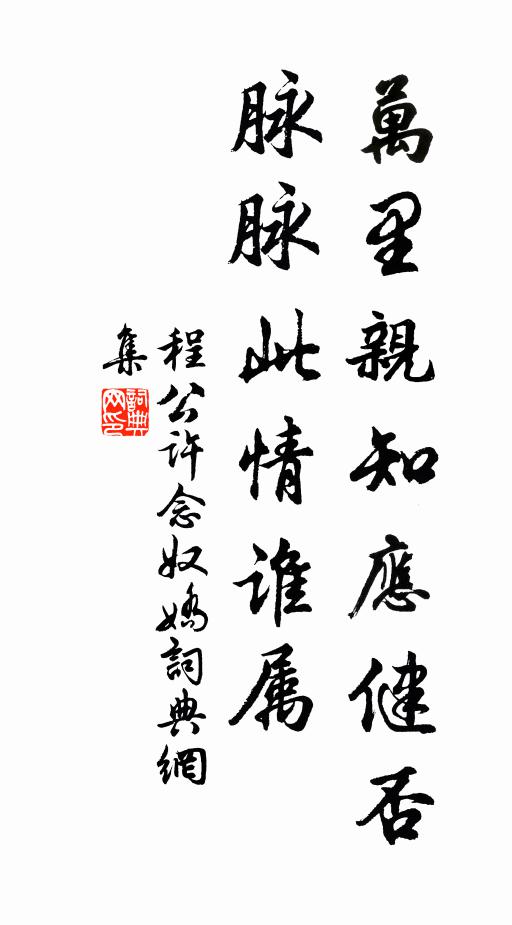 萬里親知應健否
脉脉此情誰属
程公许念奴嬌詞典網
集
詞典
网印